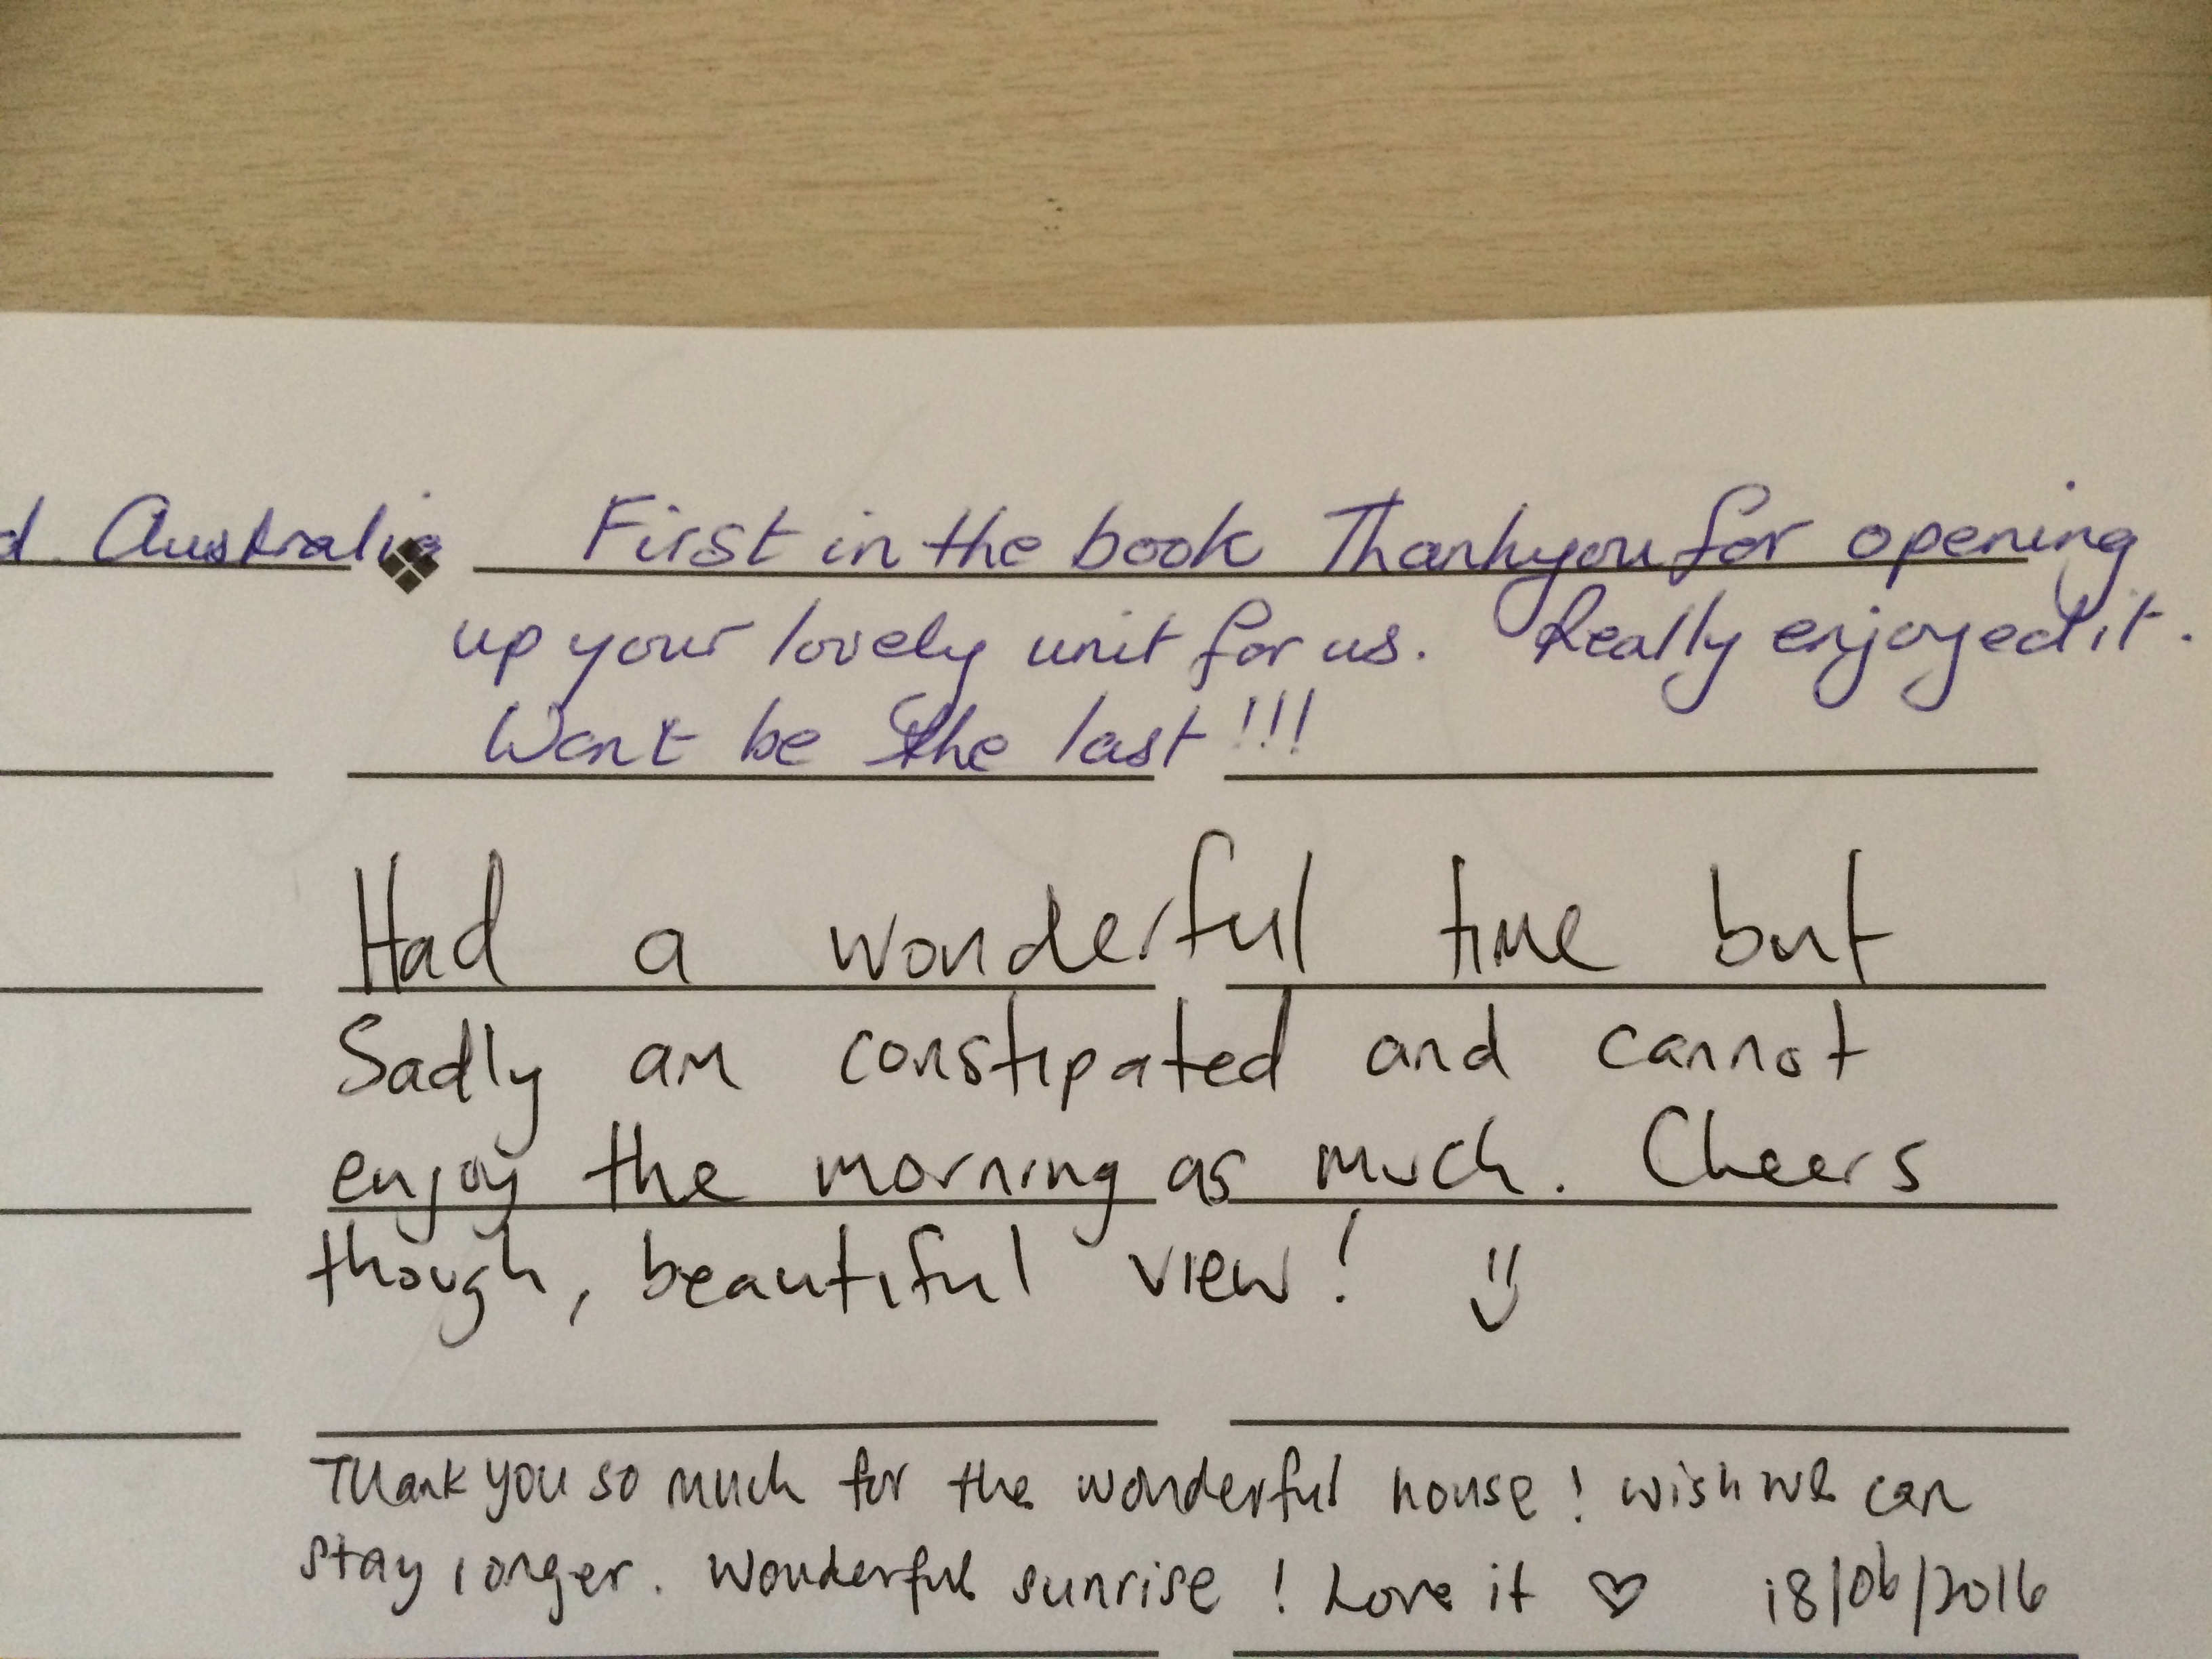 d. Australia First in the book Thankyou for opening
up your lovely unit for us. Really enjoyed it.
Wont be the last!!!
Had a wonderful time but
Sadly am constipated and cannot
enjoy the morning as much. Cheers
though, beautiful view!
Thank you so much for the wonderful house! wish we can
stay longer. Wonderful sunrise! Love it ♡ 18/06/2016